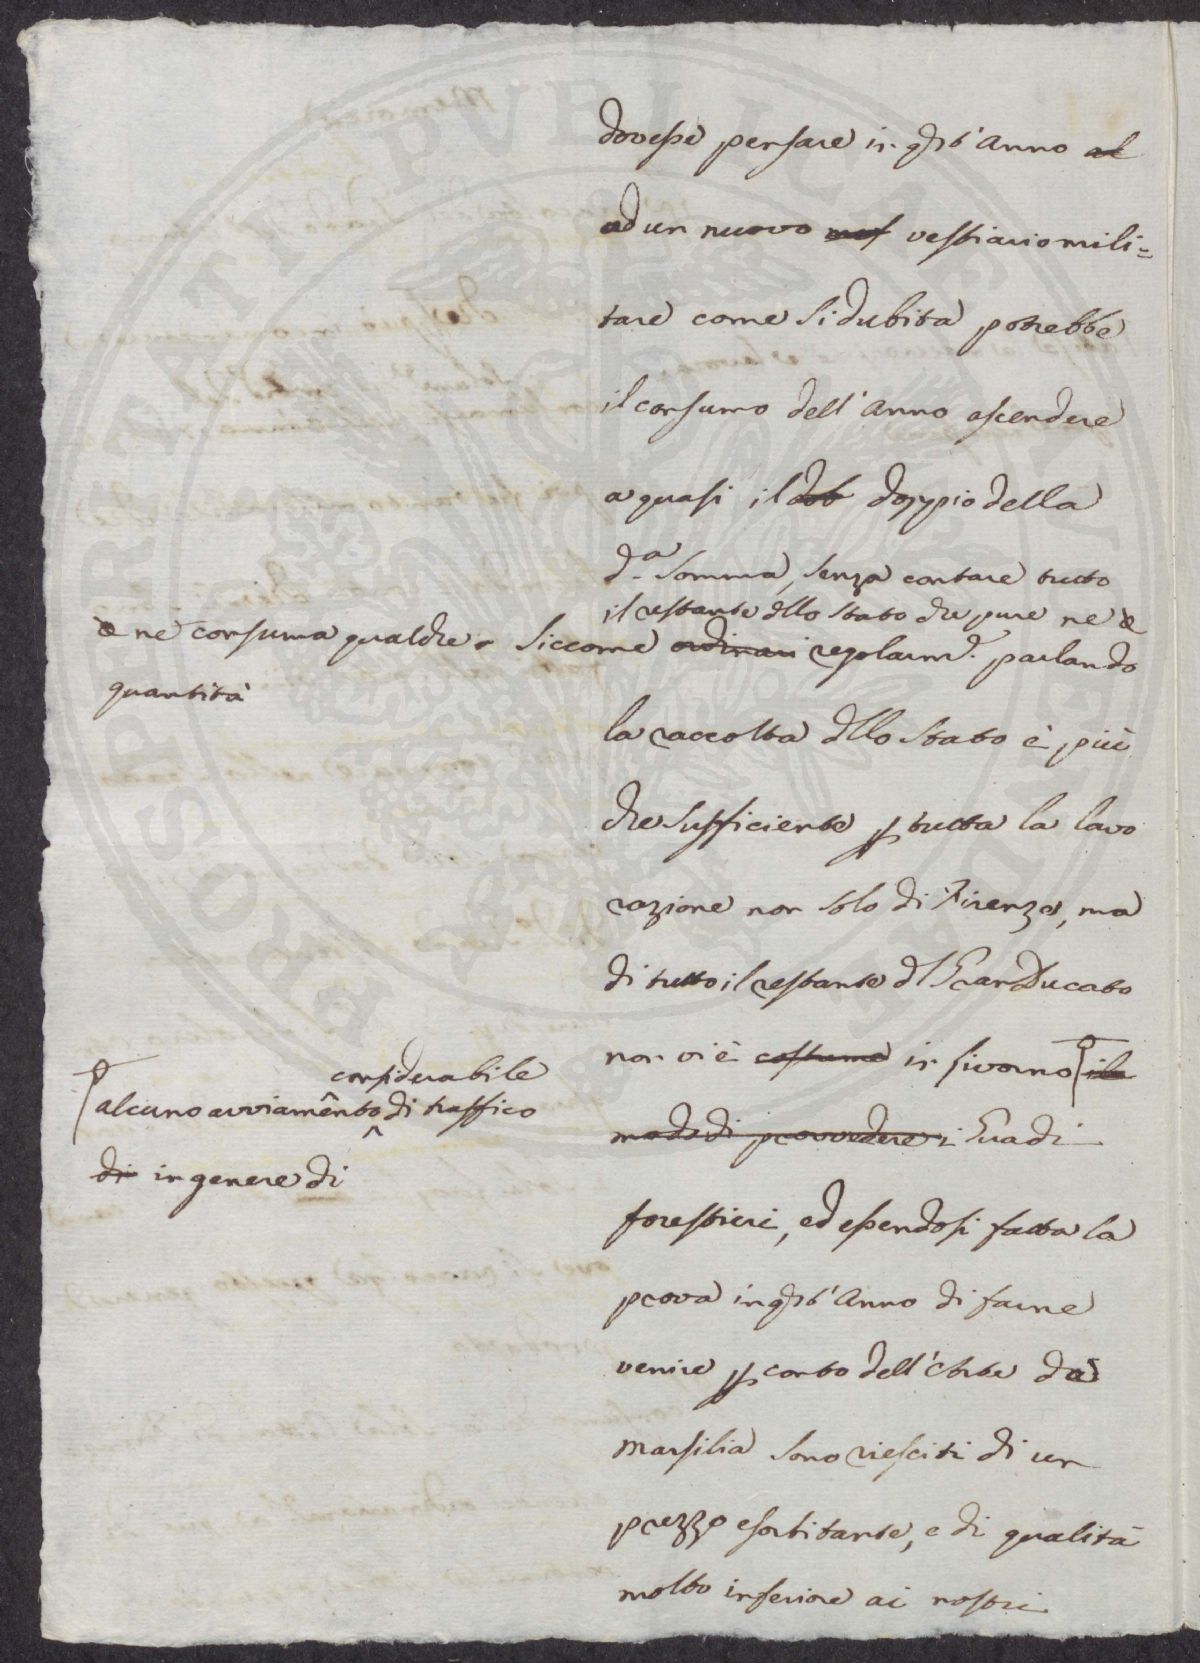 dovesse pensare in qsto Anno al
ad un nuovo vestiario mili=
tare come si dubita potrebbe
il consumo dell'Anno ascendere
a quasi il dob doppio della
da. somma, senza contare tutto
il restante dllo Stato che pure ne
e ne consuma qualche
quantità
Siccome ordinari regolarmte. parlando
la raccolta dllo Stato è più
che sufficiente p tutta la lavo
razione non solo di Firenze, ma
di tutto il restante dl Gran Ducato
non vi è costume in Livorno il
modo di provvedere i Guadi
considerabile
alcuno avviamento di traffico
di in genere di
forestieri, ed essendosi fatta la
prova in qsto Anno di farne
venire p conto dell'Arte da
Marsilia sono riesciti di un
prezzo esorbitante, e di qualità
molto inferiore ai nostri
PROPRIETÀ PUBLICA